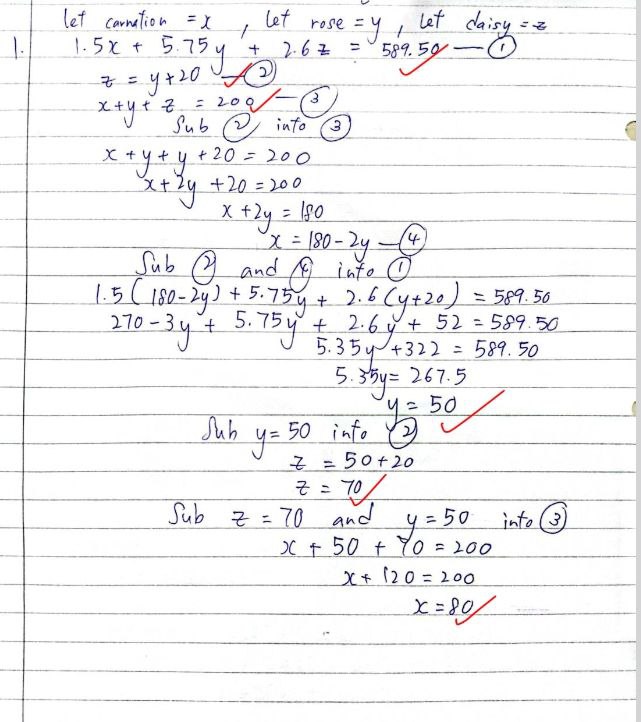 let carnation = x , let rose = y , let daisy = z
1. 1.5x + 5.75y + 2.6z = 589.50 — ①
z = y+20 — ②
x+y+z = 200 — ③
Sub ② into ③
x + y + y + 20 = 200
x + 2y + 20 = 200
x + 2y = 180
x = 180 - 2y — ④
Sub ② and ④ into ①
1.5(180-2y) + 5.75y + 2.6(y+20) = 589.50
270 - 3y + 5.75y + 2.6y + 52 = 589.50
5.35y + 322 = 589.50
5.35y = 267.5
y = 50
Sub y = 50 into ②
z = 50+20
z = 70
Sub z = 70 and y = 50 into ③
x + 50 + 70 = 200
x + 120 = 200
x = 80